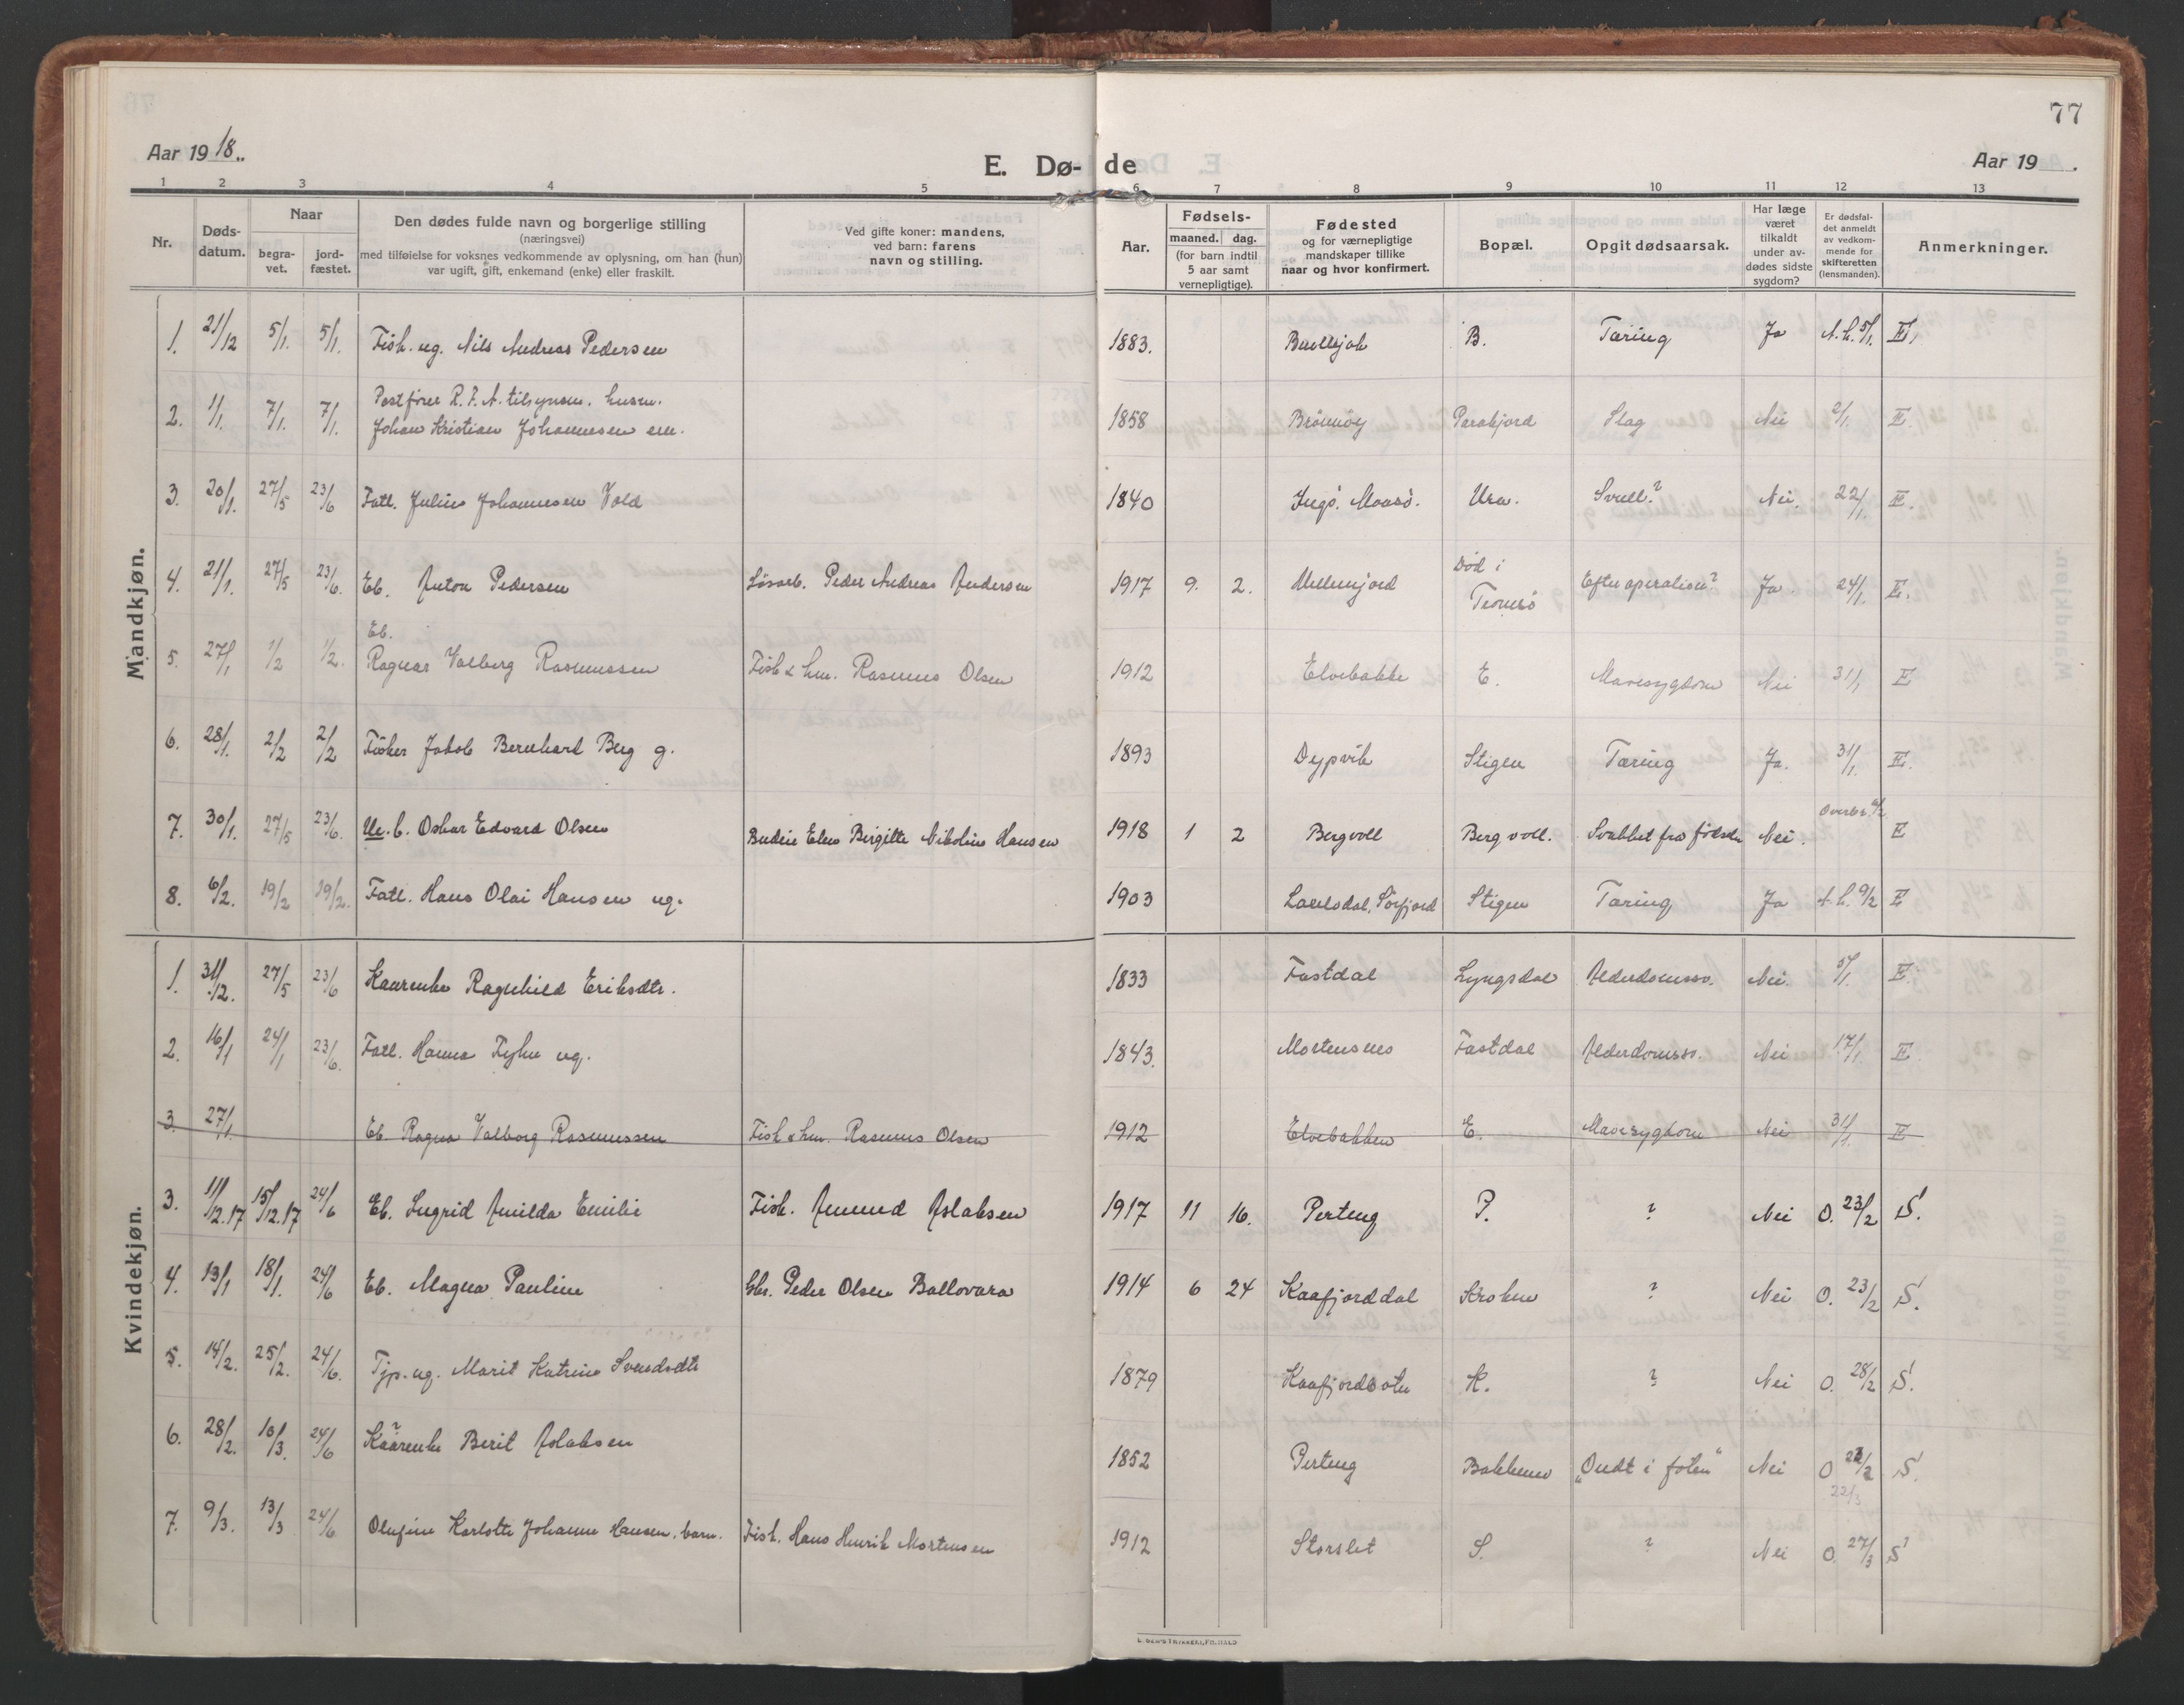 77
Aar 19 18.
E. Dø- de
Aar 19
1 2 3 4 5 6 7 8 9 10 11 12 13
Nr.
Døds-
datum.
Naar
begra-
vet.
jord-
fæstet.
Den dødes fulde navn og borgerlige stilling
(næringsvei)
med tilføielse for voksnes vedkommende av oplysning, om han (hun)
var ugift, gift, enkemand (enke) eller fraskilt.
Ved gifte koner: mandens,
ved barn: farens
navn og stilling.
Aar.
Fødsels-
maaned. dag.
(for barn indtil
5 aar samt
vernepligtige).
Fødested
og for værnepligtige
mandskaper tillike
naar og hvor konfirmert.
Bopæl.
Opgit dødsaarsak.
Har læge
været
tilkaldt
under av-
dødes sidste
sygdom?
Er dødsfal-
det anmeldt
av vedkom-
mende for
skifteretten
(lensmanden).
Anmerkninger.
Mandkjøn.
1. 21/12 5/1. 5/1. Fisk. ug. Nils Andreas Pedersen 1883. B. Tæring Ja A.h. 5/1. E.
2. 1/1. 7/1. 7/1. Postfører R.F.A. tilsynsm. husm.
Johan Kristian Johannesen em. 1858 Brönnöy Parakjord Slag Nei 2/1. E.
3. 20/1. 27/5 23/6 Fatl. Julius Johannesen Vold 1840 Ingö. Maasö. Ura. Svull? Nei. 22/1. E.
4. 21/1. 27/5 23/6. Eb. Anton Pedersen Lösarb. Peder Andreas Andersen 1917 9. 2. Død i
Tromsö Efter operation? Ja. 24/1. E.
5. 27/1 1/2 1/2. Eb.
Ragnar Valborg Rasmussen Fisk & hm. Rasmus Olsen 1912 Elvebakke E. Mavesygdom Nei 31/1 E
6. 28/1. 2/2 2/2 Fisker Jakob Bernhard Berg g. 1893 Dypvik Stigen Tæring Ja. 31/1. E.
7. 30/1. 27/5 23/6. Ue. b. Oskar Edvard Olsen Budeie Elen Birgitte Nikoline Hansen 1918 1 2 Bergvoll Bergvoll. Svakket fra födsden Nei. E
8. 6/2. 19/2 19/2. Fatl. Hans Olai Hansen ug. 1903 Sörfjord Stigen Tæring Ja A.h. 9/2 E
Kvindekjøn.
1. 31/12. 27/5 23/6 Kaarenke Ragnhild Eriksdtr. 1833 Fastdal Lyngsdal Alderdomssv. Nei. 5/1. E.
2. 16/1 24/1 23/6. Fatl. Hanna Fyhn ug. 1843. Mortensnes Fastdal Alderdomssv. Nei 17/1. E
3. 27/1. Eb. Ragna Valborg Rasmussen Fisk & hm. Rasmus Olsen 1912 Elvebakken E. Mavesygdom Nei 31/1. E
3. 11/12.17 15/12.17 24/6 Eb. Ingrid Amilda Emilie Fisk. Amund Aslaksen 1917 11 16. Perteng P. ? Nei O. 23/2 S.
4. 13/1 18/1. 24/6 Eb. Magna Pauline Gbr. Peder Olsen Ballovara 1914 6 24 Kaafjorddal Kroken ? Nei O. 23/2 S.
5. 14/2. 25/2. 24/6. Tjp. ug. Marit Katrine Svendsdtr 1879 Kaafjordbotn K. ? Nei O. 28/2 S.
6. 28/2. 10/3. 24/6 Kaarenke Berit Aslaksen 1852 Perteng Bakkene "Ondt i foten" Nei O 22/3 S.
7. 9/3. 13/3 24/6 Olufine Karlotte Johanne Hansen. barn. Fisk. Hans Henrik Mortensen 1912 Storslet S. ? Nei O. 27/3 S